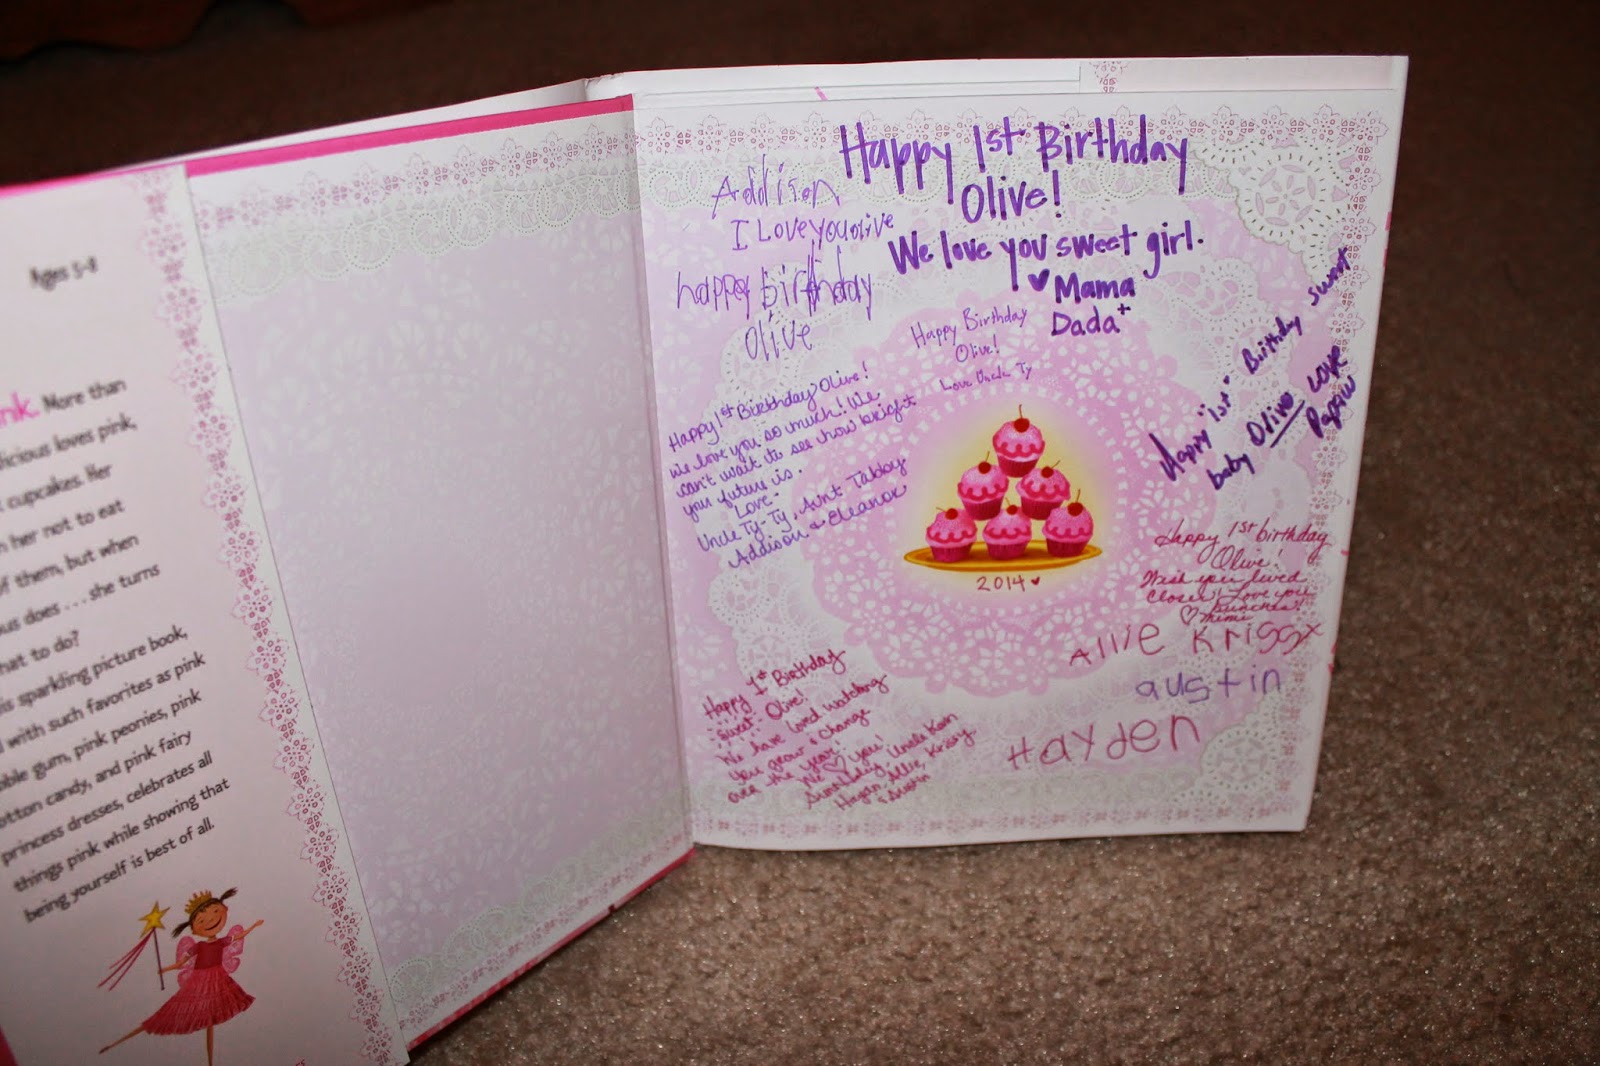 Ages 5-8
nk. More than
licious loves pink,
cupcakes. Her
her not to eat
of them, but when
ous does . . . she turns
hat to do?
is sparkling picture book,
with such favorites as pink
bble gum, pink peonies, pink
otton candy, and pink fairy
princess dresses, celebrates all
things pink while showing that
being yourself is best of all.
Happy 1st Birthday
Olive!
We love you sweet girl.
♥ Mama
Dada +
Addison
I Love you olive
happy birthday
olive
Happy Birthday
Olive!
Love Uncle Ty
Happy 1st Birthday Olive!
We love you so much! We
can't wait to see how bright
your future is.
Love -
Uncle Ty-Ty, Aint Tabby
Addison & Eleanor
Happy "1st" Birthday sweet
baby Olive Love
Papaw
2014 ♥
Happy 1st birthday
Olive!
Wish you lived
closer! Love you
bunches!
♡ Mimi
Allie Kriggx
austin
Hayden
Happy 1st Birthday
sweet Olive!
We have loved watching
you grow & change
over the year!
We ♡ you!
Uncle Ken
Allie, Krissy
& Austin